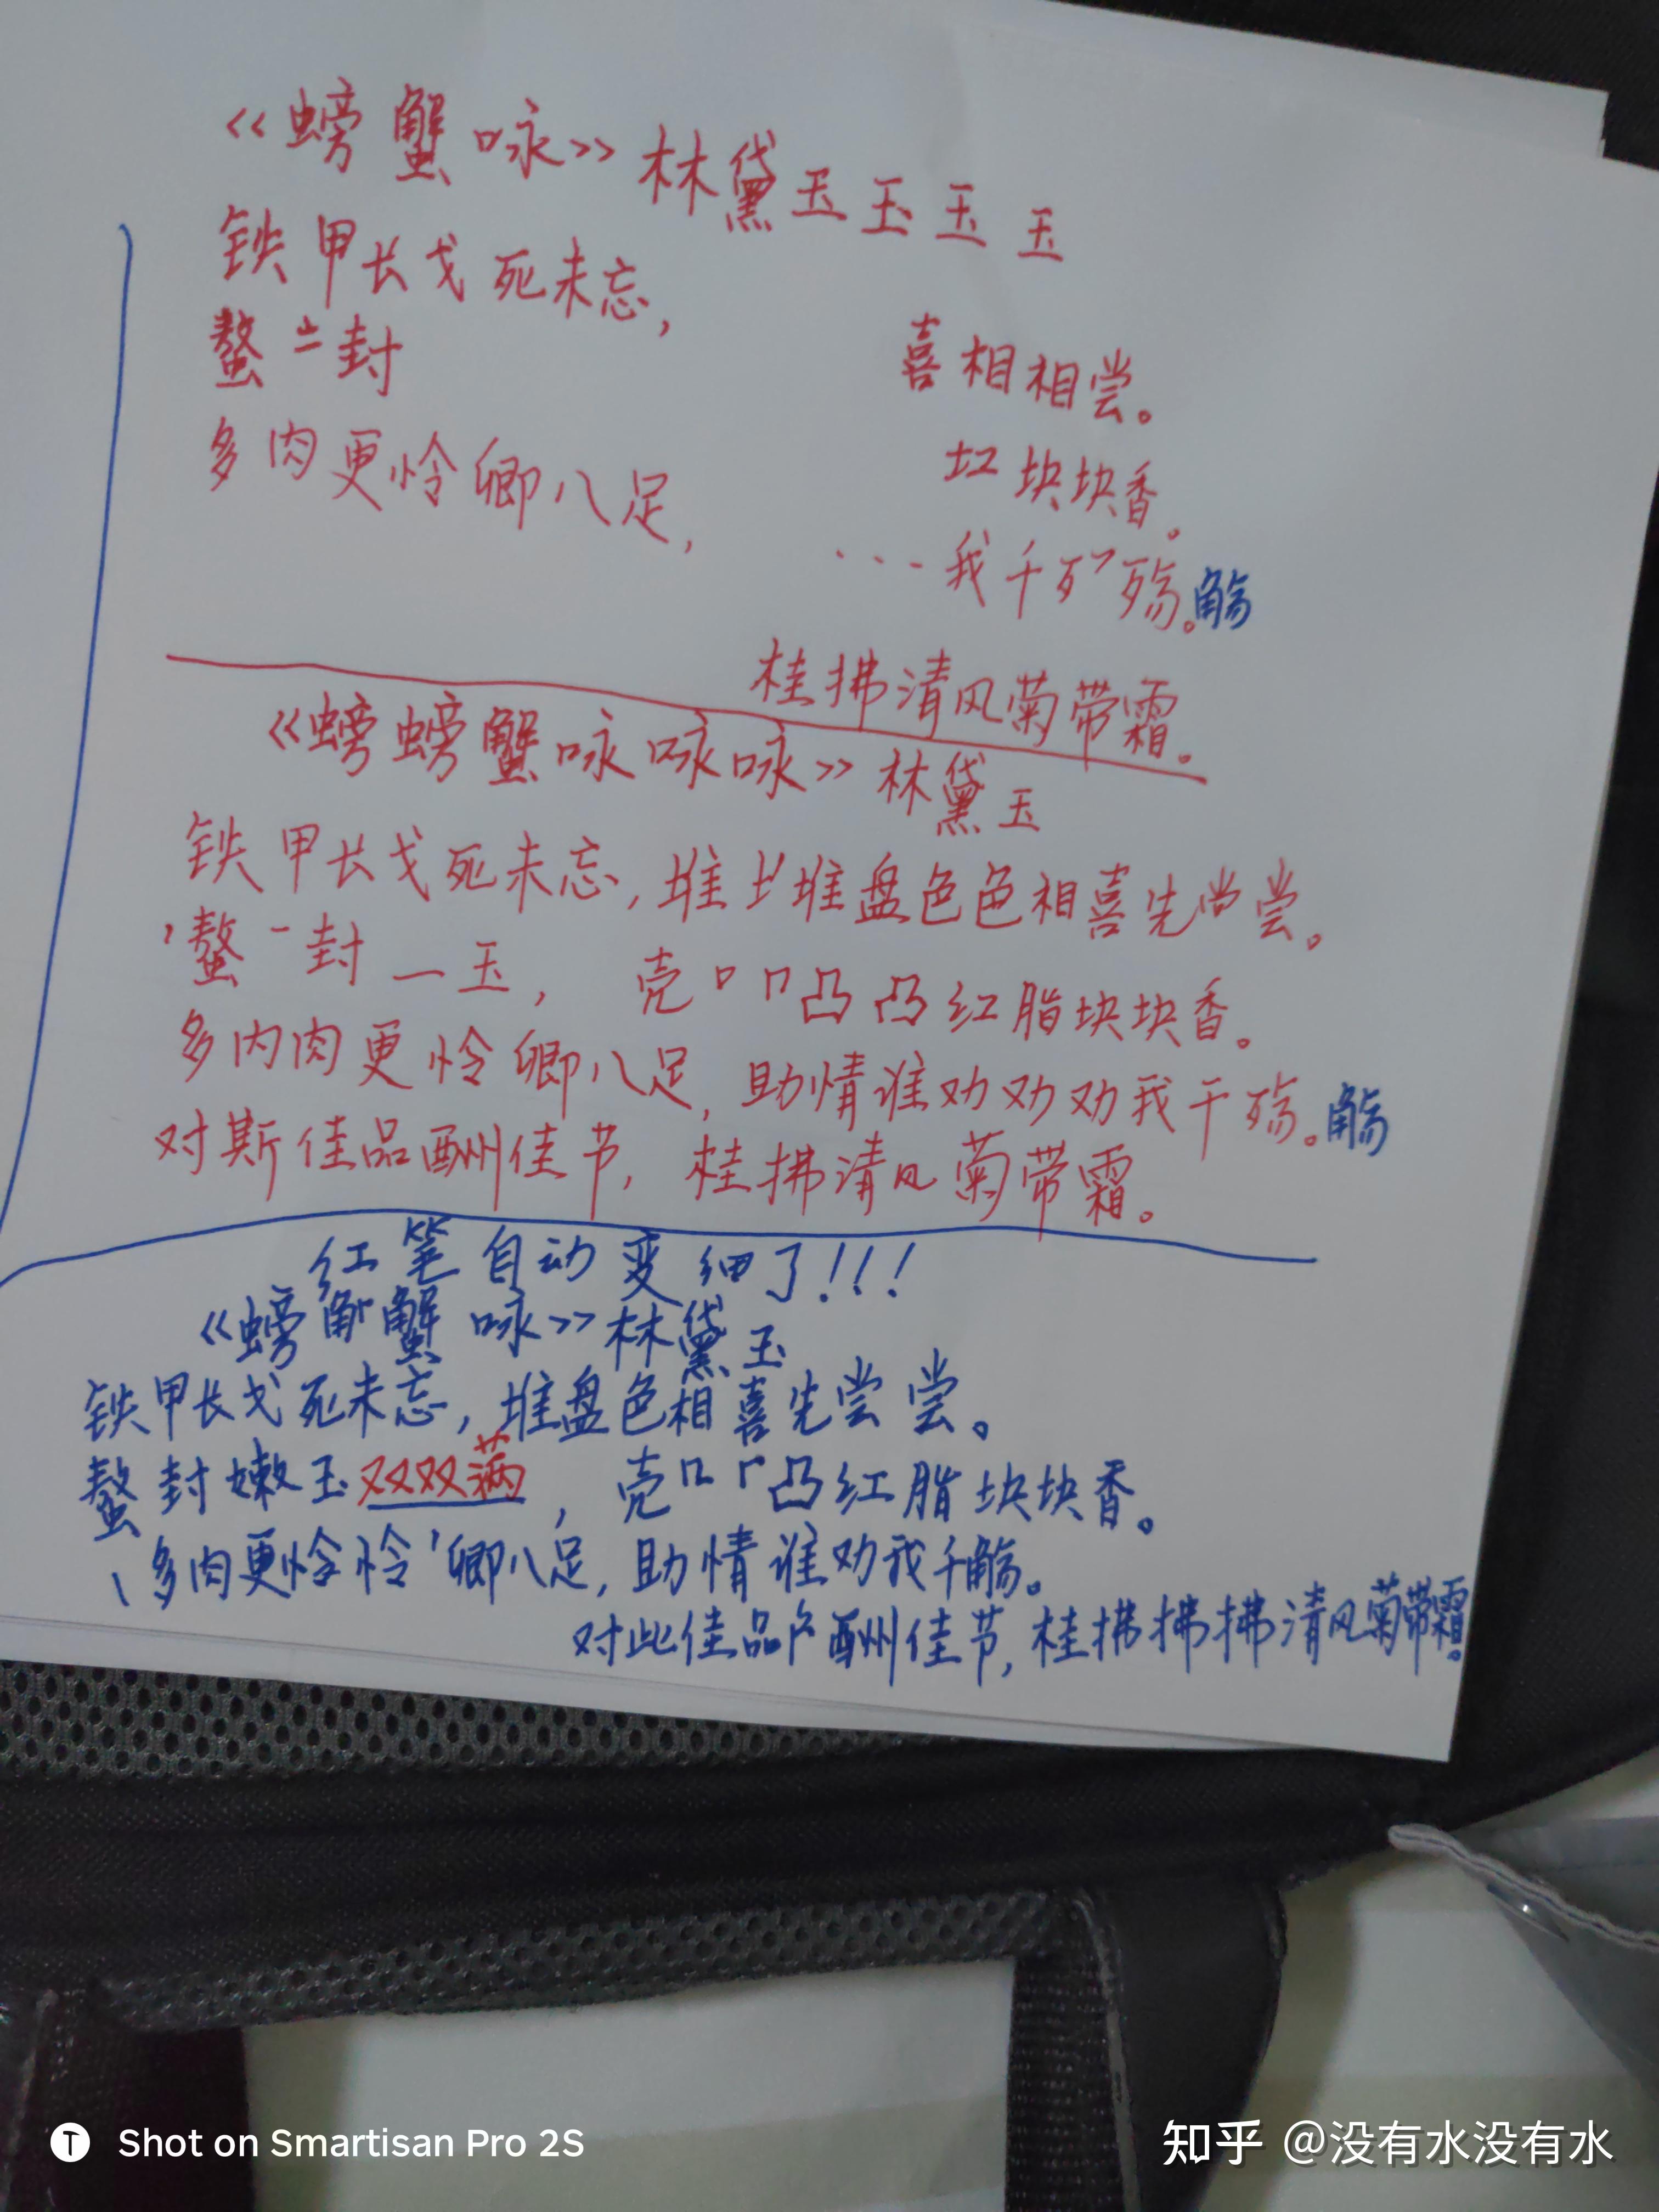 《螃蟹咏》林黛玉玉玉玉
铁甲长戈死未忘,
喜相相尝。
螯 封
块块香。
多肉更怜卿八足,
...我千 殇。觞
桂拂清风菊带霜。
《螃螃蟹咏咏咏》林黛玉
铁甲长戈死未忘,堆 堆盘色色相喜先尝。
螯 封一玉, 壳 凸凸红脂块块香。
多内肉更怜卿八足,助情谁劝劝劝我干殇。觞
对斯佳品酬佳节,桂拂清风菊带霜。
红笔自动变细了!!!
《螃 蟹咏》林黛玉
铁甲长戈死未忘,堆盘色相喜先尝尝。
螯封嫩玉双双满, 壳 凸红脂块块香。
多肉更怜怜卿八足,助情谁劝我千觞。
对此佳品 酬佳节,桂拂拂拂清风菊带霜。
Shot on Smartisan Pro 2S
知乎 @没有水没有水